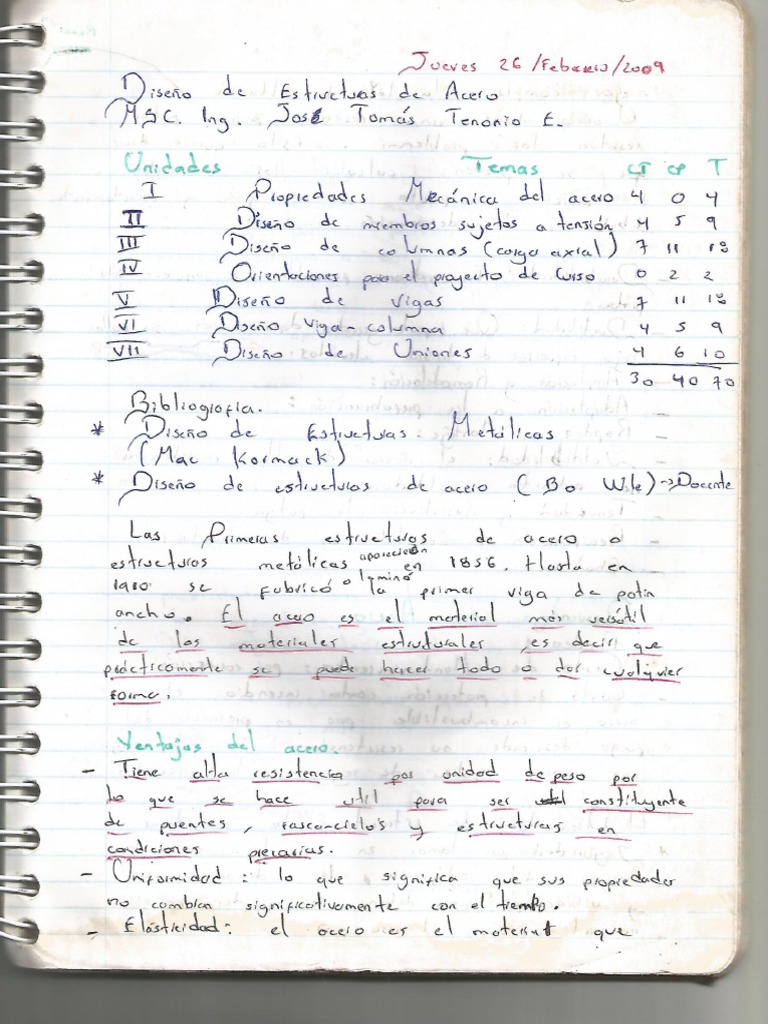 Jueves 26/Febrero/2009
Diseño de Estructuras de Acero
MSC. Ing. José Tomás Tenorio E.
Unidades Temas CT CP T
I Propiedades Mecánica del acero 4 0 4
II Diseño de miembros sujetos a tensión 4 5 9
III Diseño de columnas (carga axial) 7 11 18
IV Orientaciones para el proyecto de Curso 0 2 2
V Diseño de Vigas 7 11 18
VI Diseño viga-columna 4 5 9
VII Diseño de Uniones 4 6 10
30 40 70
Bibliografía.
* Diseño de Estructuras Metálicas
(Mac Kormack)
* Diseño de estructuras de acero (Bo Wile) → Docente
Las Primeras estructuras de acero o
estructuras metálicas aparecieron en 1856. Hasta en
1910 se fabricó o laminó la primer viga de patin
ancho. El acero es el material más versátil
de los materiales estructurales, es decir que
prácticamente se puede hacer todo o dar cualquier
forma.
Ventajas del acero.
- Tiene alta resistencia por unidad de peso por
lo que se hace util para ser constituyente
de puentes, rascancielos y estructuras en
condiciones precarias.
- Uniformidad: lo que significa que sus propiedades
no cambian significativamente con el tiempo.
- Elásticidad: el acero es el material que